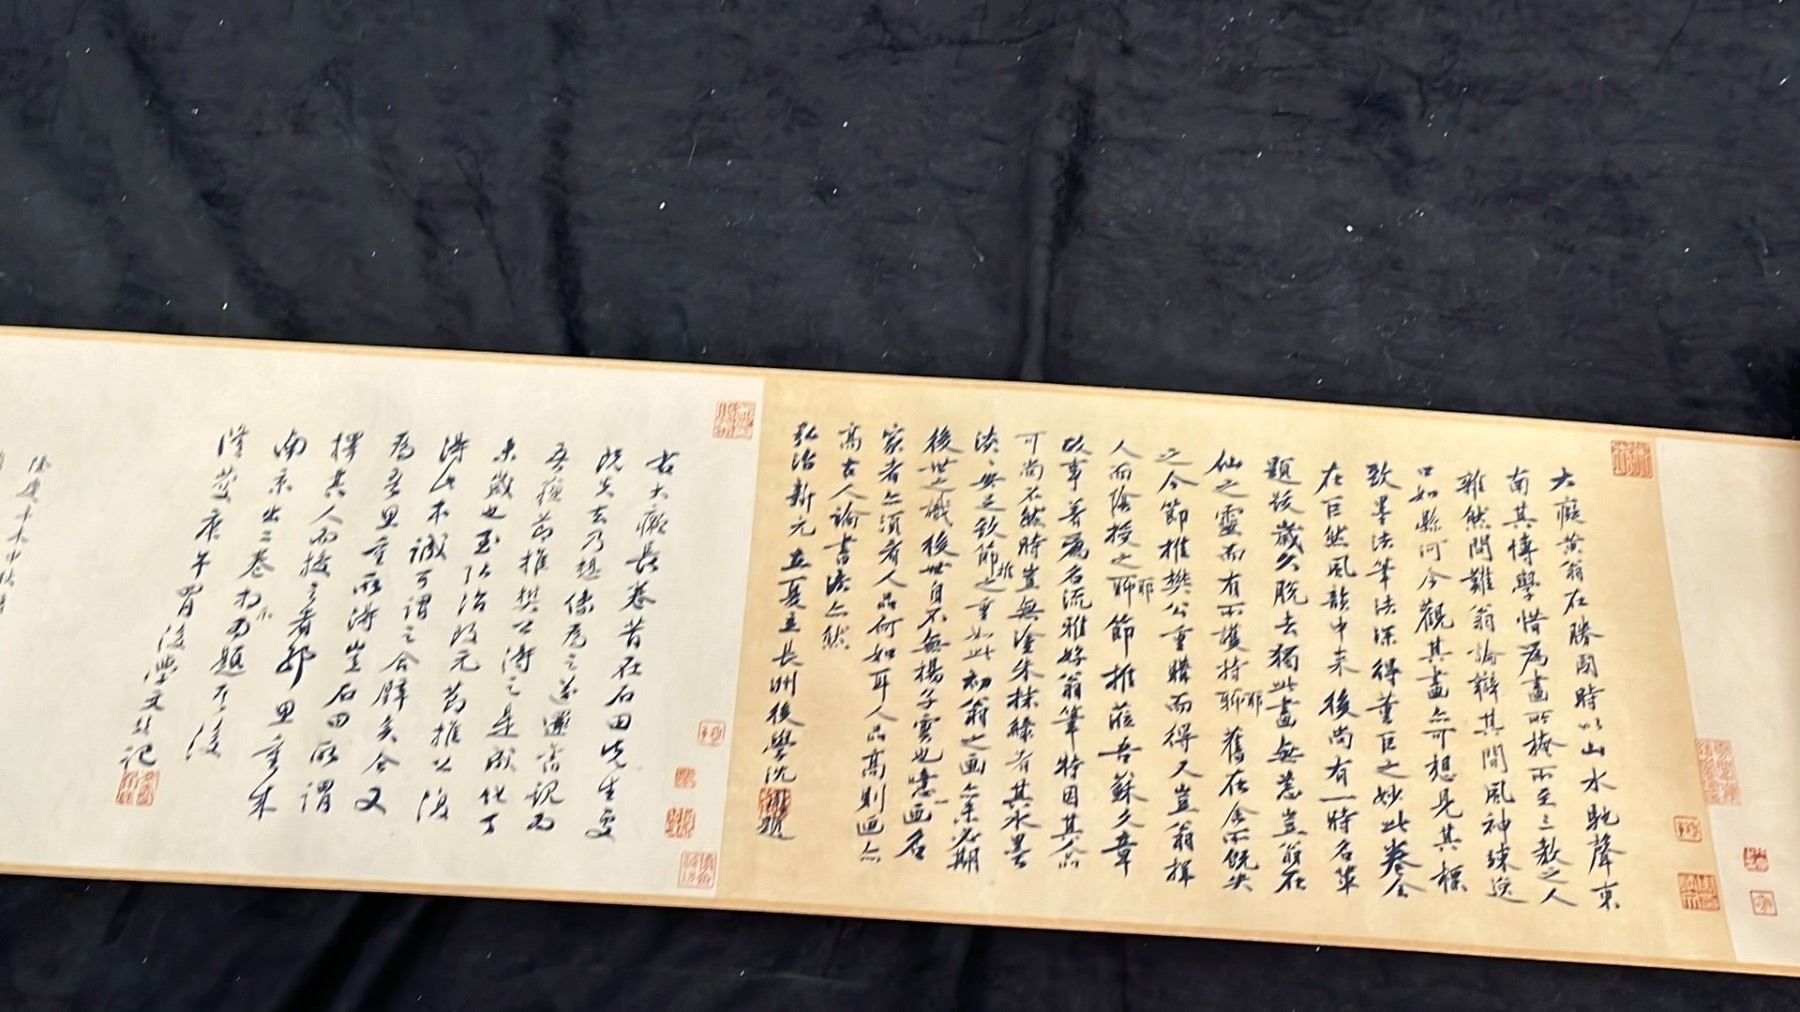 大癡黃翁在勝國時以山水馳聲東
南其博學惜為畫所掩所至三教之人
雜然問難翁論辯其間風神竦逸
口如懸河今觀其畫亦可想見其標
致墨法筆法深得董巨之妙此卷全
在巨然風韻中來後尚有一時名輩
題跋歲久脫去獨此畫無恙豈翁在
仙之靈而有所護持耶舊在余所既失
之今節推樊公重購而得又豈翁擇
人而陰授之耶節推蒞吾蘇文章
政事著為名流雅好翁筆特因其人品
可尚不然時豈無塗朱抹綠者其水墨
淡淡無足欽節推之重如此初翁之画亦未必期
後世之識後世自不無揚子雲也噫画名
家者亦須看人品何如耳人品高則画亦
高古人論書法亦然
弘治新元立夏立長洲後學沈周題
右大癡長卷昔在石田先生處
既失去乃想像為之遂還舊觀為
吾蘇節推樊公得之是成化丁
未歲也至弘治改元節推公復
得此本誠可謂之合璧矣今又
為吾思重所得豈石田所謂
擇其人而授之者耶思重來
南京出二卷相示為題其後
隆慶庚午四月後學文彭記
隆慶辛未中秋